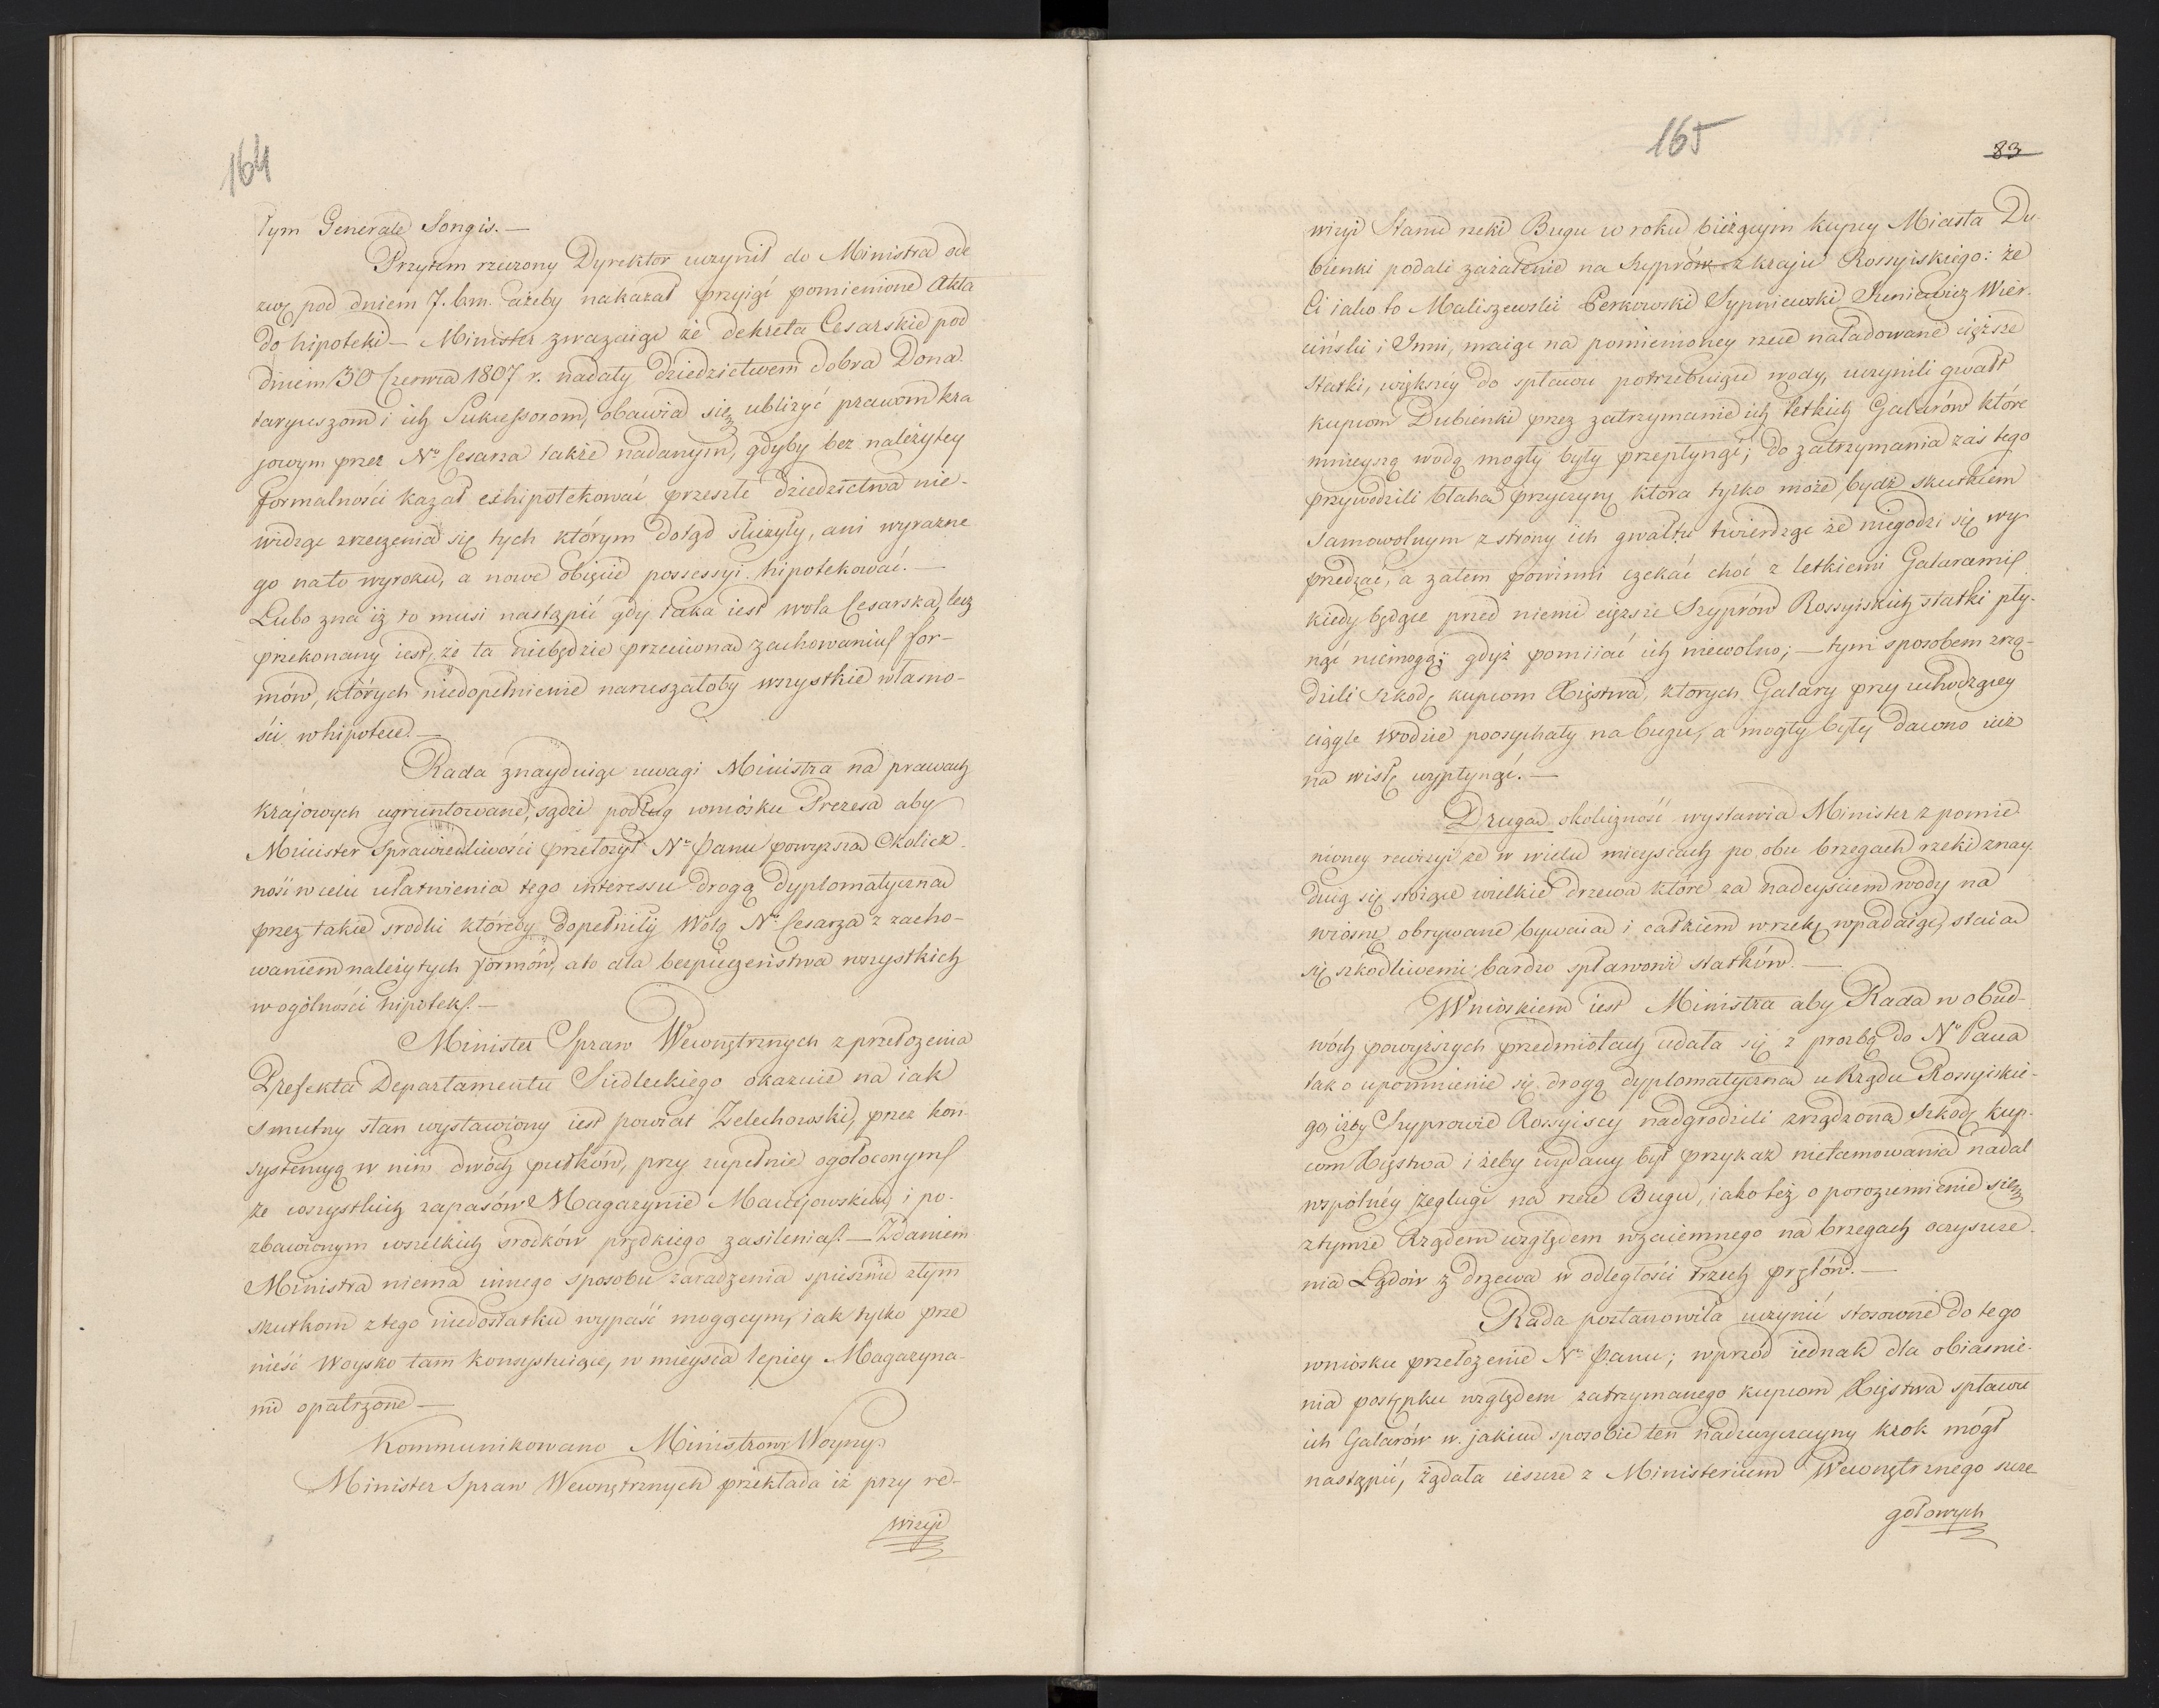 164
tym Generale Songis. —
Przytem rzeczony Dyrektor uczynił do Ministra ode
zwę pod dniem 7. b.m. ażeby nakazał przyiąć pomienione Akta
do hipoteki — Minister zwazaiąc że dekreta Cesarskie pod
dniem 30 Czerwca 1807 r. nadały dziedzictwem dobra Dona-
taryuszom i ich Sukcessorom, obawia się ubliżyć prawom kra
jowym przez Nº Cesarza także nadanym, gdyby bez należytey
formalności kazał exhipotekować przeszłe dziedzictwa nie-
widząc zrzeczenia się tych którym dotąd służyły, ani wyraźne
go na to wyroku, a nowe obięcie possessyi hipotekować. —
Lubo zna iż to musi nastąpić gdy taka iest wola Cesarska, lecz
przekonany iest, że ta niebędzie przeciwna zachowaniu for-
mów, których niedopełnienie naruszałoby wszystkie własno-
ści w hipotece. —
Rada znayduiąc uwagi Ministra na prawach
krajowych ugruntowane, sądzi podług wniosku Prezesa aby
Minister Sprawiedliwości przełożył Nu Panu powyższa Okolicz-
ność w celu ułatwienia tego interessu drogą dyplomatyczna
przez takie srodki któreby dopełniły Wolą Nº Cesarza z zacho-
waniem należytych formów, a to dla bezpieczeństwa wszystkich
w ogólności hipotek. —
Minister Spraw Wewnętrznych z przełożenia
Prefekta Departamentu Siedleckiego okazuie na iak
smutny stan wystawiony iest powiat Żelechowski, przez kon-
systencyą w nim dwóch pułków, przy zupełnie ogołoconym
ze wszystkich zapasów Magazynie Maciejowskim, i po-
zbawionym wszelkich srodków prędkiego zasilenia. — Zdaniem
Ministra niema innego sposobu zaradzenia spiesznie złym
skutkom z tego niedostatku wypaść mogącym, iak tylko prze
nieść Woysko tam konsystuiące, w mieysca lepiey Magazyna-
mi opatrzone —
Kommunikowano Ministrowi Woyny.
Minister Spraw Wewnętrznych przekłada iż przy re-
wizyi
165
83
wizyi Stanu rzeki Bugu w roku bieżącym kupcy Miasta Du-
bienki podali zażalenie na Szyprów z kraju Rossyiskiego: że
Ci iako to Maliszewski Perkowski Sypniewski Juniewicz Wier-
ciński i Inni, maiąc na pomienioney rzece naładowane cięższe
statki, większéy do spławu potrzebuiące wody, uczynili gwałt
kupcom Dubienki przez zatrzymanie ich letkich Galarów które
mnieyszą wodą mogły były przepłynąć; do zatrzymania zaś tego
przywodzili błaha przyczynę która tylko może bydź skutkiem
samowolnym z strony ich gwałtu twierdząc że niegodzi się wy
przedzać, a zatem powinni czekać choć z letkiemi Galarami
kiedy będące przed niemi cięższe Szyprów Rossyiskich statki pły-
nąć niemogą; gdyż pomiiać ich niewolno; — tym sposobem zrzą-
dzili szkodę kupcom Xięstwa, których Galary przy uchodzącey
ciągle wodzie poosychały na bugu, a mogły były dawno iuż
na wisłę wypłynąć. —
Druga okoliczność wystawia Minister z pomie
nioney rewizyi że w wielu mieyscach po obu brzegach rzeki znay
duią się stoiące wielkie drzewa które za nadeyściem wody na
wiosnę obrywane bywaia i całkiem w rzekę wpadaiąc, staia
się szkodliwemi bardzo spławowi statków. —
Wnioskiem iest Ministra aby Rada w obud-
wóch powyższych przedmiotach udała się z prozbą do Nº Pana
tak o upomnienie się drogą dyplomatyczna u Rządu Rossyiskie-
go, iżby Szyprowie Rossyiscy nadgrodzili zrządzona szkodę kup-
com Xięstwa i żeby wydany był przykaz nietamowania nadal
wspólnéy żeglugi na rzece Bugu, iako też o porozumienie się
z tymże Rządem względem wzaiemnego na brzegach oczyszcze-
nia Lądów z drzewa w odległości trzech prętów. —
Rada postanowiła uczynić stosowne do tego
wniosku przełożenie Nu Panu; wprzód iednak dla obiaśnie-
nia postępku względem zatrzymanego kupcom Xięstwa spławu
ich Galarów w jakim sposobie ten nadzwyczayny krok mógł
nastąpić, żądała ieszcze z Ministerium Wewnętrznego szcze
gołowych